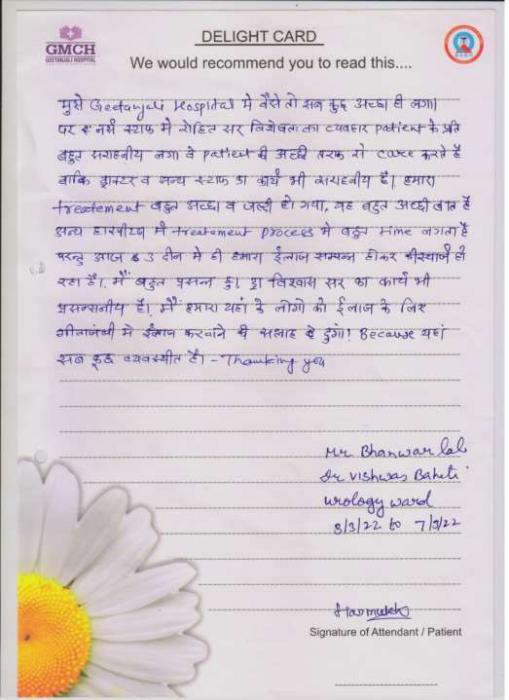 GMCH
GEETANJALI HOSPITAL
DELIGHT CARD
We would recommend you to read this....
मुझे Geetanjali Hospital मे वैसे तो सब कुछ अच्छा ही लगा।
पर नर्स स्टाफ मे रोहित सर विशेषता का व्यवहार patient के प्रति
बहुत सराहनीय लगा वे patient की अच्छी तरफ से care करते है
बाकि डाक्टर व अन्य स्टाफ का कार्य भी सराहनीय है। हमारा
treatement बहुत अच्छा व जल्दी हो गया, यह बहुत अच्छी बात है
अन्य हास्पीटल मे treatement process मे बहुत time लगता है
परन्तु आज 3 दीन मे ही हमारा ईलाज सम्पन्न होकर डीस्चार्ज हो
रहा है। मैं बहुत प्रसन्न हु। डा विश्वास सर का कार्य भी
प्रसन्सनीय है। मैं हमारा यहां के लोगो को ईलाज के लिए
गीतांजली मे ईलाज करवाने की सलाह दुंगा! Because यहां
सब कुछ व्यवस्थीत है। - Thanking you
Mr Bhanwar lal
Dr Vishwas Baheti
urology ward
8/3/22 to 7/3/22
Signature of Attendant / Patient